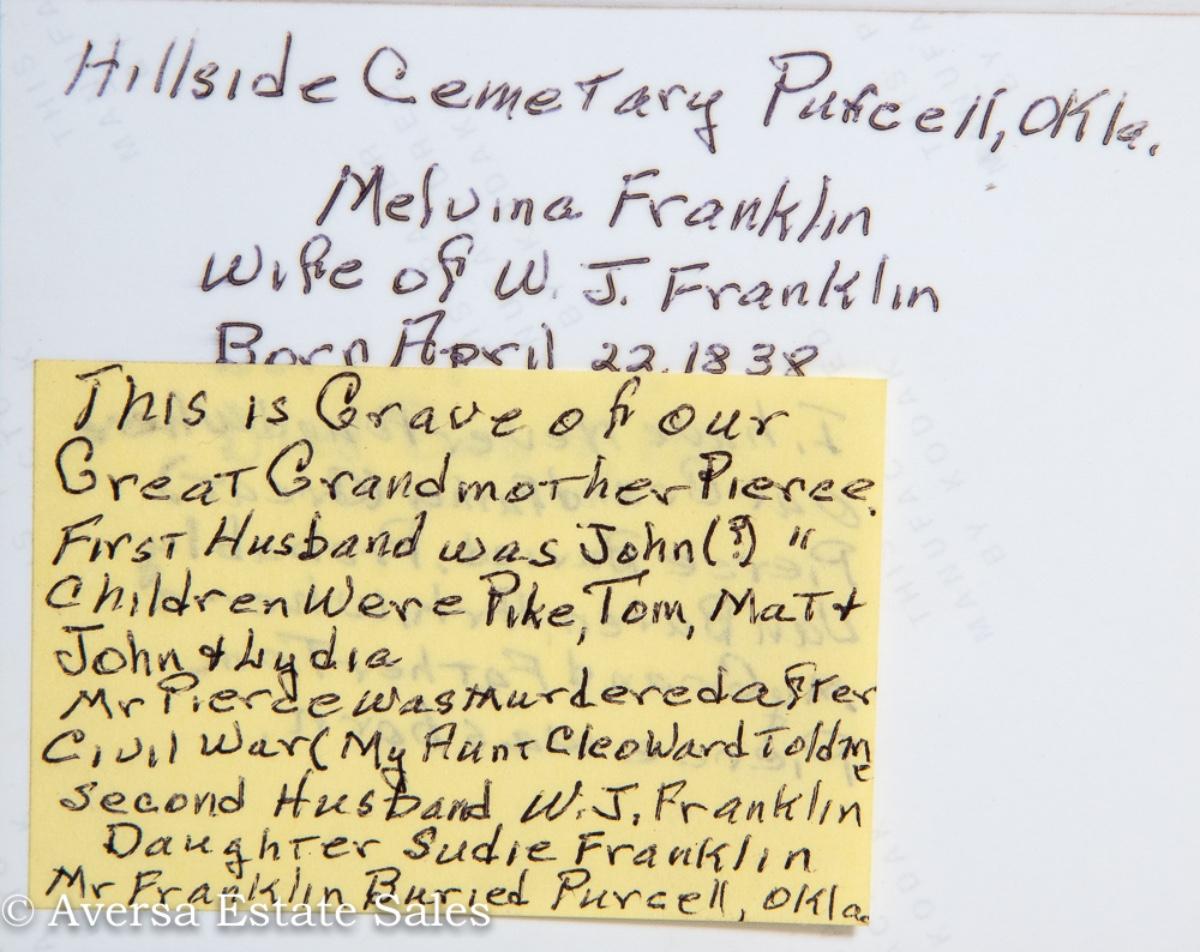 Hillside Cemetary Purcell, Okla.
Melvina Franklin
Wife of W. J. Franklin
Born April 22, 1838
This is Grave of our
Great Grandmother Pierce.
First Husband was John(?) "
Children Were Pike, Tom, Mat +
John + Lydia
Mr Pierce was murdered after
Civil War (My Aunt Cleo Ward Told me
Second Husband W.J. Franklin
Daughter Sudie Franklin
Mr Franklin Buried Purcell, Okla.
© Aversa Estate Sales